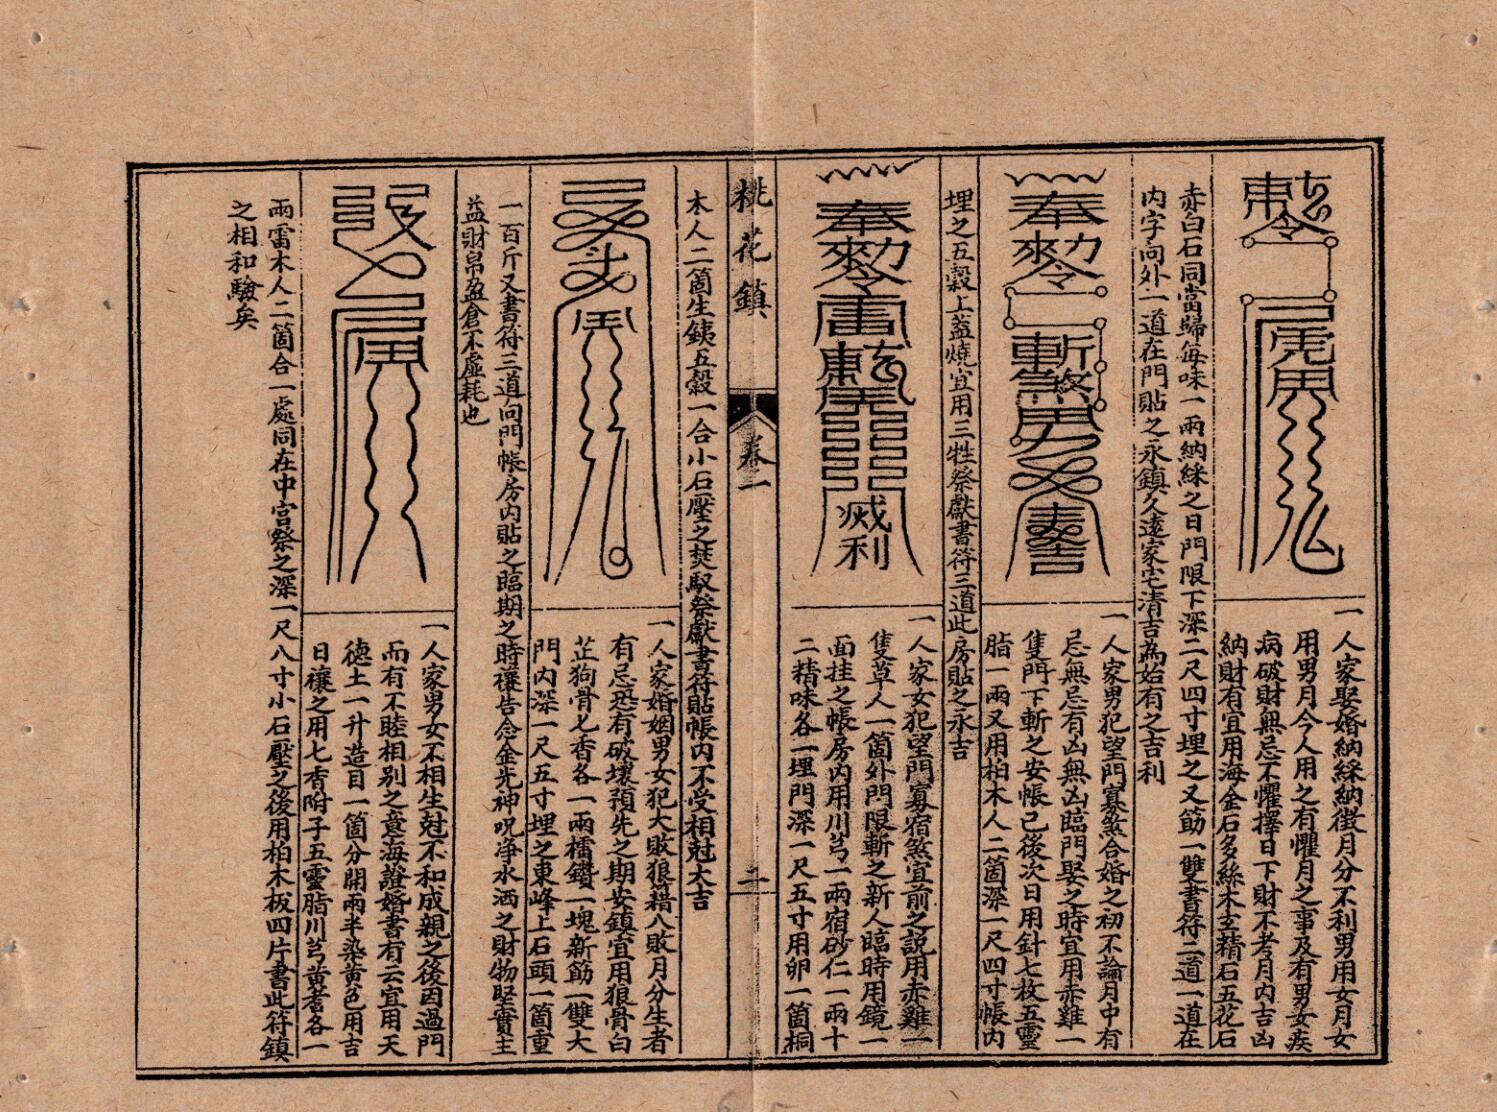 一人家娶婚納綵納徵月分不利男用女月女
用男月今人用之有懼月之事及有男女疾
病破財無忌不懼擇日下財不考月內吉凶
納財有宜用海金石多絲木玄精石五花石
赤白石同當歸每味一兩納綵之日門限下深二尺四寸埋之又筯一雙書符二道一道在
內字向外一道在門貼之永鎮久遠家宅清吉為始有之吉利
奉勅令
斬煞
一人家男犯望門寡煞合婚之初不論月中有
忌無忌有凶無凶臨門娶之時宜用赤雞一
隻門下斬之安帳已後次日用針七枚五靈
脂一兩又用柏木人二箇深一尺四寸帳內
埋之五穀上蓋燒宜用三牲祭獻書符三道此房貼之永吉
奉勅令
滅利
一人家女犯望門寡宿煞宜前之說用赤雞一
隻草人一箇外門限斬之新人臨時用鏡一
面挂之帳房內用川芎一兩宿砂仁一兩十
二精味各一埋門深一尺五寸用卵一箇桐
桃花鎮
卷一
二
木人二箇生鉄五穀一合小石壓之焚馭祭獻書符貼帳內不受相尅大吉
一人家婚姻男女犯大敗狼籍八敗月分生者
有忌恐有破壞預先之期安鎮宜用狼骨白
芷狗骨七香各一兩檽鑽一塊新筯一雙大
門內深一尺五寸埋之東峰上石頭一箇重
一百斤又書符三道向門帳房內貼之臨期之時禳告念金光神呪净水洒之財物堅實主
益財帛盈倉不虛耗也
一人家男女不相生尅不和成親之後因過門
而有不睦相別之意海證婚書有云宜用天
德土一升造目一箇分開兩半染黄色用吉
日禳之用七香附子五靈脂川芎黄耆各一
兩雷木人二箇合一處同在中宮祭之深一尺八寸小石壓之後用柏木板四片書此符鎮
之相和驗矣